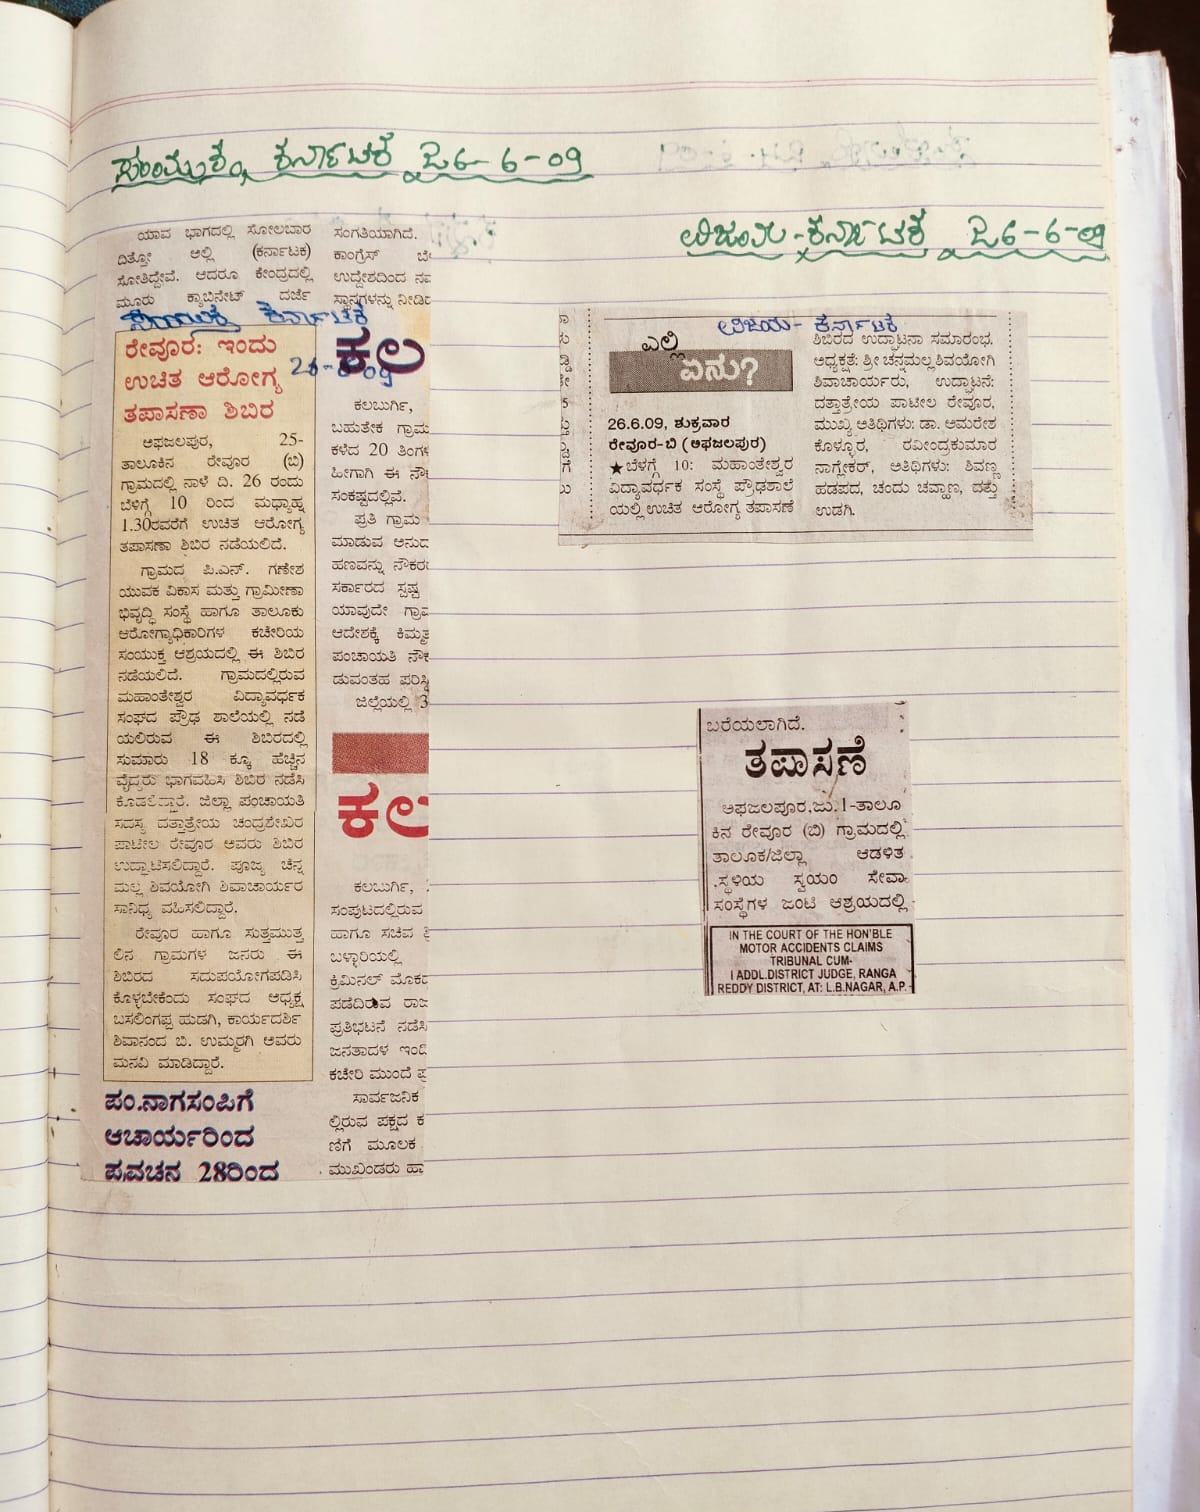 ಸಂಯುಕ್ತ ಕರ್ನಾಟಕ 26-6-09
ವಿಜಯ-ಕರ್ನಾಟಕ 26-6-09
ಯಾವ ಭಾಗದಲ್ಲಿ ಸೋಲಬಾರ
ದಿತ್ತೋ ಅಲ್ಲಿ (ಕರ್ನಾಟಕ)
ಸೋತಿದ್ದೇವೆ. ಆದರೂ ಕೇಂದ್ರದಲ್ಲಿ
ಮೂರು ಕ್ಯಾಬಿನೆಟ್ ದರ್ಜೆ
ಸಂಯುಕ್ತ ಕರ್ನಾಟಕ
26-6-09
ರೇವೂರ: ಇಂದು
ಉಚಿತ ಆರೋಗ್ಯ
ತಪಾಸಣಾ ಶಿಬಿರ
ಅಫಜಲಪುರ, 25-
ತಾಲೂಕಿನ ರೇವೂರ (ಬಿ)
ಗ್ರಾಮದಲ್ಲಿ ನಾಳೆ ದಿ. 26 ರಂದು
ಬೆಳಿಗ್ಗೆ 10 ರಿಂದ ಮಧ್ಯಾಹ್ನ
1.30ರವರೆಗೆ ಉಚಿತ ಆರೋಗ್ಯ
ತಪಾಸಣಾ ಶಿಬಿರ ನಡೆಯಲಿದೆ.
ಗ್ರಾಮದ ಪಿ.ಎನ್. ಗಣೇಶ
ಯುವಕ ವಿಕಾಸ ಮತ್ತು ಗ್ರಾಮೀಣಾ
ಭಿವೃದ್ಧಿ ಸಂಸ್ಥೆ ಹಾಗೂ ತಾಲೂಕು
ಆರೋಗ್ಯಾಧಿಕಾರಿಗಳ ಕಚೇರಿಯ
ಸಂಯುಕ್ತ ಆಶ್ರಯದಲ್ಲಿ ಈ ಶಿಬಿರ
ನಡೆಯಲಿದೆ. ಗ್ರಾಮದಲ್ಲಿರುವ
ಮಹಾಂತೇಶ್ವರ ವಿದ್ಯಾವರ್ಧಕ
ಸಂಘದ ಪ್ರೌಢ ಶಾಲೆಯಲ್ಲಿ ನಡೆ
ಯಲಿರುವ ಈ ಶಿಬಿರದಲ್ಲಿ
ಸುಮಾರು 18 ಕ್ಕೂ ಹೆಚ್ಚಿನ
ವೈದ್ಯರು ಭಾಗವಹಿಸಿ ಶಿಬಿರ ನಡೆಸಿ
ಕೊಡಲಿದ್ದಾರೆ. ಜಿಲ್ಲಾ ಪಂಚಾಯತಿ
ಸದಸ್ಯ ದತ್ತಾತ್ರೇಯ ಚಂದ್ರಶೇಖರ
ಪಾಟೀಲ ರೇವೂರ ಅವರು ಶಿಬಿರ
ಉದ್ಘಾಟಿಸಲಿದ್ದಾರೆ. ಪೂಜ್ಯ ಚೆನ್ನ
ಮಲ್ಲ ಶಿವಯೋಗಿ ಶಿವಾಚಾರ್ಯರ
ಸಾನಿಧ್ಯ ವಹಿಸಲಿದ್ದಾರೆ.
ರೇವೂರ ಹಾಗೂ ಸುತ್ತಮುತ್ತ
ಲಿನ ಗ್ರಾಮಗಳ ಜನರು ಈ
ಶಿಬಿರದ ಸದುಪಯೋಗಪಡಿಸಿ
ಕೊಳ್ಳಬೇಕೆಂದು ಸಂಘದ ಅಧ್ಯಕ್ಷ
ಬಸಲಿಂಗಪ್ಪ ಹುಡಗಿ, ಕಾರ್ಯದರ್ಶಿ
ಶಿವಾನಂದ ಬಿ. ಉಮ್ಮರಗಿ ಅವರು
ಮನವಿ ಮಾಡಿದ್ದಾರೆ.
ಪಂ.ನಾಗಸಂಪಿಗೆ
ಆಚಾರ್ಯರಿಂದ
ಪ್ರವಚನ 28ರಿಂದ
ಸಂಗತಿಯಾಗಿದೆ.
ಕಾಂಗ್ರೆಸ್
ಉದ್ದೇಶದಿಂದ
ಸ್ಥಾನಗಳನ್ನು
ಕಲ
ಕಲಬುರ್ಗಿ,
ಬಹುತೇಕ ಗ್ರಾಮ
ಕಳೆದ 20 ತಿಂಗಳ
ಹೀಗಾಗಿ ಈ
ಸಂಕಷ್ಟದಲ್ಲಿವೆ.
ಪ್ರತಿ ಗ್ರಾಮ
ಮಾಡುವ ಅನುದ
ಹಣವನ್ನು ನೌಕರ
ಸರ್ಕಾರದ ಸ್ಪಷ್ಟ
ಯಾವುದೇ ಗ್ರಾ
ಆದೇಶಕ್ಕೆ ಕಿಮ್ಮತ್ತ
ಪಂಚಾಯತಿ ನೌಕ
ಡುವಂತಹ ಪರಿಸ್ಥಿ
ಜಿಲ್ಲೆಯಲ್ಲಿ 3
ಕಲ
ಕಲಬುರ್ಗಿ,
ಸಂಪುಟದಲ್ಲಿರುವ
ಹಾಗೂ ಸಚಿವ
ಬಳ್ಳಾರಿಯಲ್ಲಿ
ಕ್ರಿಮಿನಲ್ ಮೊಕದ
ಪಡೆದಿರುವ ರಾಜ
ಪ್ರತಿಭಟನೆ ನಡೆಸಿ
ಜನತಾದಳ ಇಂದಿ
ಕಚೇರಿ ಮುಂದೆ
ಸಾರ್ವಜನಿಕ
ಲ್ಲಿರುವ ಪಕ್ಷದ ಕ
ಣಿಗೆ ಮೂಲಕ
ಮುಖಂಡರು ಹಾ
ವಿಜಯ- ಕರ್ನಾಟಕ
ಎಲ್ಲಿ
ಏನು?
26.6.09, ಶುಕ್ರವಾರ
ರೇವೂರ-ಬಿ (ಅಫಜಲಪುರ)
★ಬೆಳಗ್ಗೆ 10: ಮಹಾಂತೇಶ್ವರ
ವಿದ್ಯಾವರ್ಧಕ ಸಂಸ್ಥೆ ಪ್ರೌಢಶಾಲೆ
ಯಲ್ಲಿ ಉಚಿತ ಆರೋಗ್ಯ ತಪಾಸಣೆ
ಶಿಬಿರದ ಉದ್ಘಾಟನಾ ಸಮಾರಂಭ.
ಅಧ್ಯಕ್ಷತೆ: ಶ್ರೀ ಚನ್ನಮಲ್ಲ ಶಿವಯೋಗಿ
ಶಿವಾಚಾರ್ಯರು, ಉದ್ಘಾಟನೆ:
ದತ್ತಾತ್ರೇಯ ಪಾಟೀಲ ರೇವೂರ,
ಮುಖ್ಯ ಅತಿಥಿಗಳು: ಡಾ. ಅಮರೇಶ
ಕೊಳ್ಳೂರ, ರವೀಂದ್ರಕುಮಾರ
ನಾಗ್ಲೇಕರ್, ಅತಿಥಿಗಳು: ಶಿವಣ್ಣ
ಹಡಪದ, ಚಂದು ಚವ್ಹಾಣ, ದತ್ತು
ಉಡಗಿ.
ಬರೆಯಲಾಗಿದೆ.
ತಪಾಸಣೆ
ಅಫಜಲಪೂರ.ಜು.1-ತಾಲೂ
ಕಿನ ರೇವೂರ (ಬಿ) ಗ್ರಾಮದಲ್ಲಿ
ತಾಲೂಕ/ಜಿಲ್ಲಾ ಆಡಳಿತ
,ಸ್ಥಳಿಯ ಸ್ವಯಂ ಸೇವಾ
ಸಂಸ್ಥೆಗಳ ಜಂಟಿ ಆಶ್ರಯದಲ್ಲಿ
IN THE COURT OF THE HON'BLE
MOTOR ACCIDENTS CLAIMS
TRIBUNAL CUM-
I ADDL.DISTRICT JUDGE, RANGA
REDDY DISTRICT, AT: L.B.NAGAR, A.P.